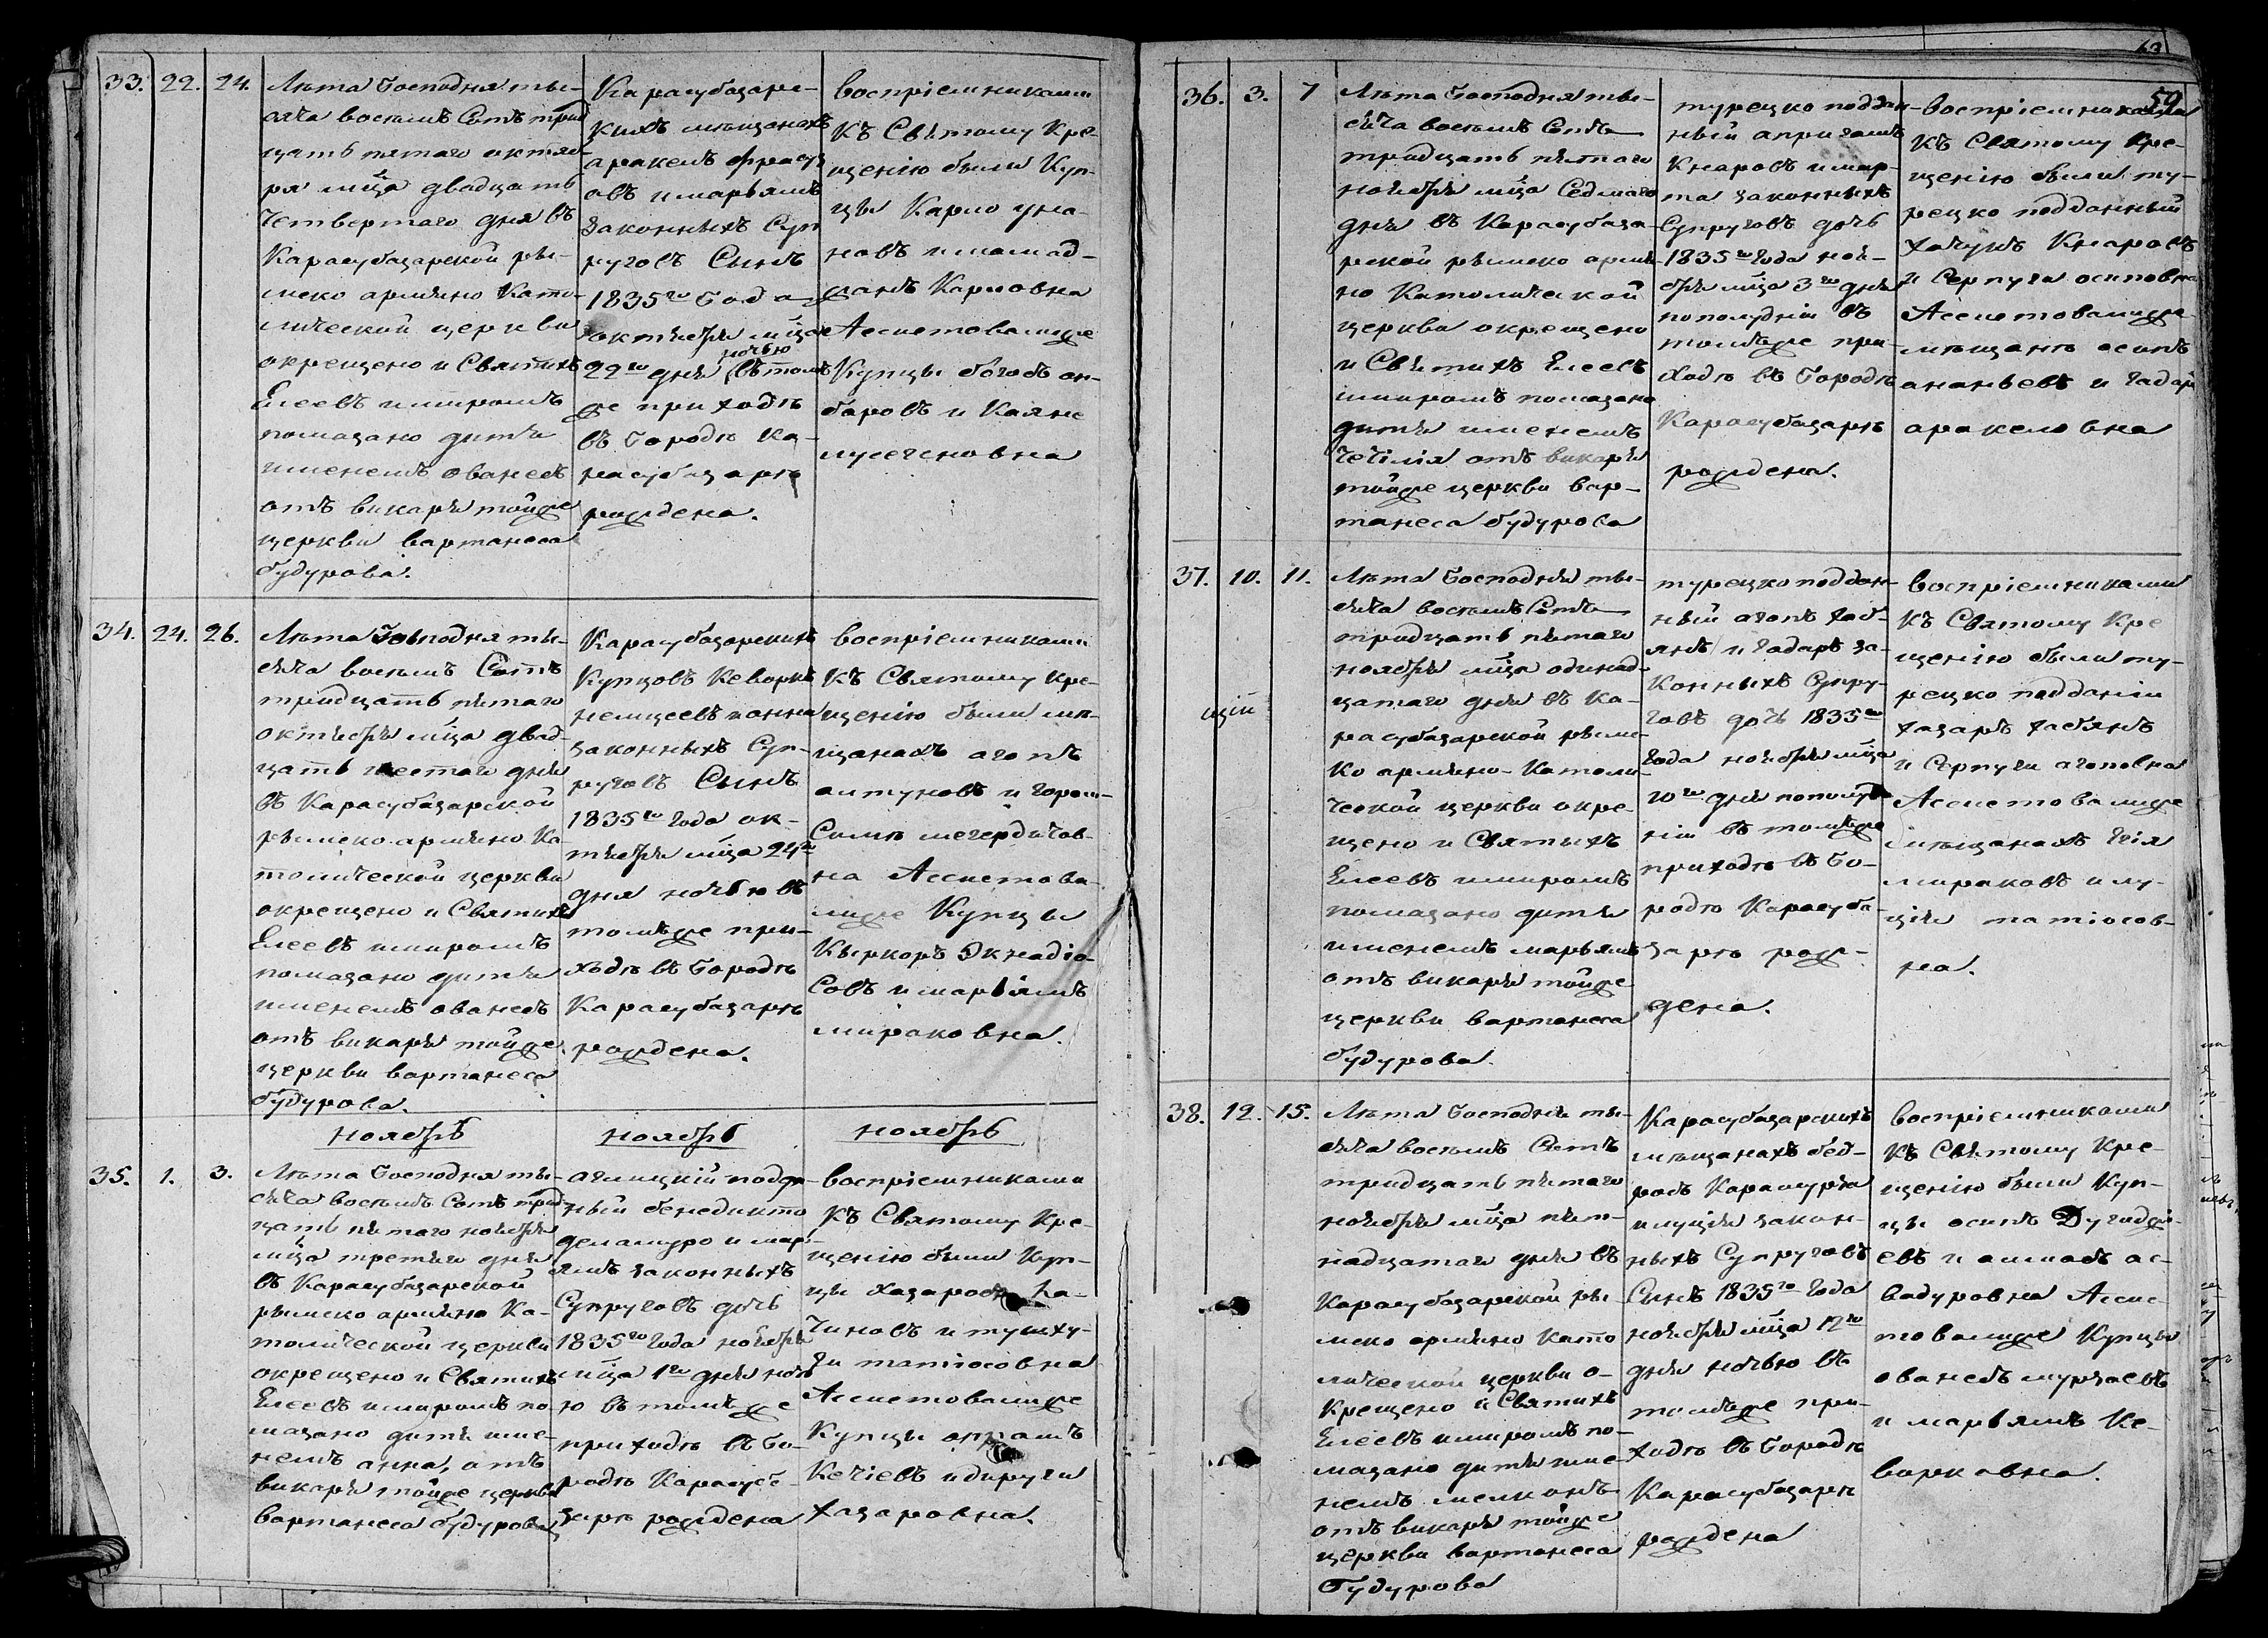 33. 22. 24.
Лѣта Господня ты-
сяча восемь Сотъ трид
цать пятаго октяб-
ря мца двадцать
четвертаго дня въ
Карасубазарской ри-
мско армяно Като-
лической церкви
окрещено и Святымъ
Елеевъ имиромъ
помазано дитя
именемъ ованесъ
отъ викарія тойже
церкви вартанеса
будурова.
Карасубазарс-
кихъ мещанахъ
аракелъ
овъ имарьямъ
законныхъ Суп
руговъ Сынъ
1835го Года
октября мца
ночью
22го дня въ томъ
же приходѣ
въ Городѣ Ка-
расубазарѣ
рождена.
воспріемниками
Къ Святому Кре
щенію были Куп-
цы Карпо уна-
новъ имамад-
ханъ Карповна
Ассистовалиже
Купцы богосъ он-
баровъ и Каяне
лусегеновна
34. 24. 26.
Лѣта Господня ты-
сяча восемъ Сотъ
тридцать пятаго
октября мца двад-
цать шестаго дня
въ Карасубазарской
римско армяно Ка-
толической церкви
окрещено и Святымъ
Елеевъ имиромъ
помазано дитя
именемъ ованесъ
отъ викарія тойже
церкви вартанеса
будурова.
Карасубазарскихъ
Купцовъ Кеворкъ
немцеевъ ианна
законныхъ Суп-
руговъ Сынъ
1835го Года ок-
тября мца 24го
дня ночью въ
томъже при-
ходѣ въ Городѣ
Карасубазарѣ
рождена.
воспріемниками
Къ Святому Кре-
щенію были мѣ-
щанахъ агопъ
антуновъ и гором-
Симъ мегердичов-
на Ассистова-
лиже Купцы
Кыркоръ Экнадіо-
Совъ и маріямъ
мираковна.
ноябрь
ноябрь
ноябрь
35. 1. 3.
Лѣта Господня ты-
сяча восемь Сотъ трид
цать пятаго ноября
мца третьяго дня
въ Карасубазарской
римско армяно Ка-
толической церкви
окрещено и Святымъ
Елеевъ имиромъ по
мазано дитя име-
немъ анна, отъ
викарія тойже церкви
вартанеса будурова
аглицкій подда-
ный бенедикто
деламуро и мар-
ямъ законныхъ
Супруговъ дочь
1835го Года ноября
мца 1го дня ночь
ю въ томъ же
приходѣ въ Го-
родѣ Карасуба-
зарѣ рождена
воспріемниками
Къ Святому Кре-
щенію были Куп-
цы Хазаросъ Ха-
чиновъ и тушху-
ги татіосовна
Ассистовалиже
Купцы апрамъ
Кечіевъ идируги
хазаровна.
59
36. 3. 7
Лѣта Господня ты-
сяча восемь Сотъ
тридцать пятаго
ноября мца Седмаго
дня въ Карасубаза-
рской римско армя-
но Католической
церкви окрещено
и Святымъ Елеевъ
имиромъ помазано
дитя именемъ
Чечілія отъ викарія
тойже церкви вар-
танеса будуроса
турецко поддан-
ный апригамъ
Кнаровъ имар-
та законныхъ
Супруговъ дочь
1835го Года ноя-
бря мца 3го дня
пополудніи въ
томъже при-
ходѣ въ Городѣ
Карасубазарѣ
рождена.
воспріемниками
Къ Святому Кре-
щенію были ту-
рецко подданный
хачукъ Кнаровъ
и Серпуги осиповна
Ассистовалиже
мѣщанъ осипъ
ананьевъ и гадар
аракеловна
37. 10. 11.
Лѣта Господня ты-
сяча восемь Сотъ
тридцать пятаго
ноября мца одинад-
цатаго дня въ Ка-
расубазарской римс-
ко армяно-Католи-
ческой церкви окре-
щено и Святымъ
Елеевъ имиромъ
помазано дитя
именемъ марьямъ
отъ викарія тойже
церкви вартанеса
будурова.
щій
турецко поддан-
ный агопъ хас-
янъ и гадаръ за-
конныхъ Супру-
говъ дочь 1835го
Года ноября мца
10го дня пополуд
ніи въ томъже
приходѣ въ Го-
родѣ Карасуба-
зарѣ рож-
дена.
воспріемниками
Къ Святому Кре
щенію были ту-
рецко подданіи
хазаръ хасянъ
и Серпуги агоповна
Ассистовалиже
мѣщанахъ Егія
мираковъ и лу-
ція татіосов-
на.
38. 12. 15.
Лѣта Господня ты-
сяча восемь Сотъ
тридцать пятаго
ноября мца пят-
надцатаго дня въ
Карасубазарской ри-
мско армяно Като
лической церкви о-
крещено и Святымъ
Елеевъ имиромъ по-
мазано дитя име
немъ мелконъ
отъ викарія тойже
церкви вартанеса
будурова
Карасубазарскихъ
мѣщанахъ бед-
росъ Карамурза
илуція закон-
ныхъ Супруговъ
Сынъ 1835го Года
ноября мца 12го
дня ночью въ
томъже при-
ходѣ въ Городѣ
Карасубазарѣ
рождена
воспріемниками
Къ Святому Кре-
щенію были Куп-
цы осипъ
евъ и алмасъ ас-
вадуровна Асси-
товалиже Купцы
ованесъ мурзаевъ
и марьямъ Ке-
ворковна.